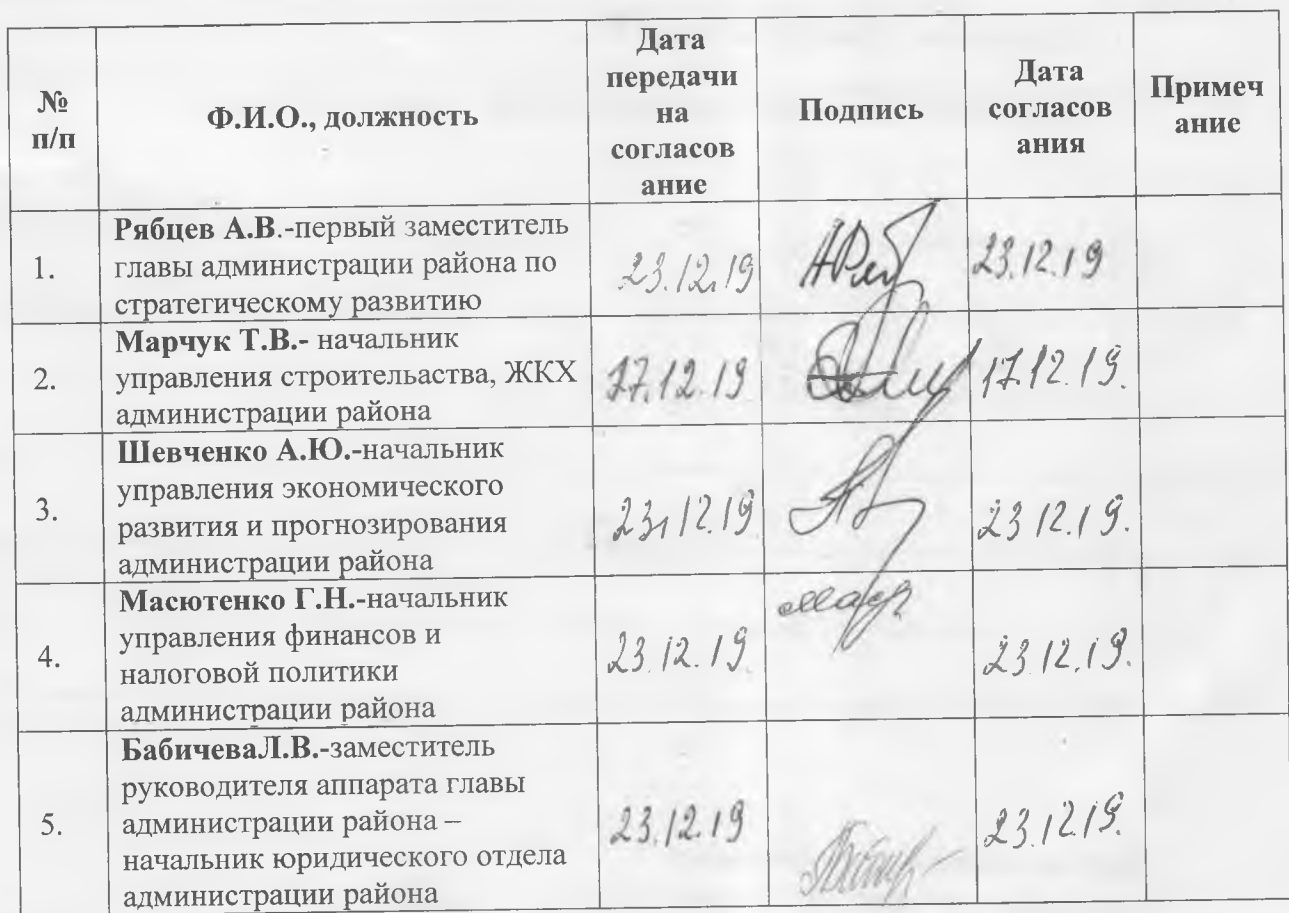 № п/п
Ф.И.О., должность
Дата
передачи
на
согласов
ание
Подпись
Дата
согласов
ания
Примеч
ание
1.
Рябцев А.В.-первый заместитель
главы администрации района по
стратегическому развитию
23.12.19
23.12.19
2.
Марчук Т.В.- начальник
управления строительаства, ЖКХ
администрации района
17.12.19
17.12.19.
3.
Шевченко А.Ю.-начальник
управления экономического
развития и прогнозирования
администрации района
23.12.19
23.12.19.
4.
Масютенко Г.Н.-начальник
управления финансов и
налоговой политики
администрации района
23.12.19.
23.12.19.
5.
БабичеваЛ.В.-заместитель
руководителя аппарата главы
администрации района –
начальник юридического отдела
администрации района
23.12.19
23.12.19.